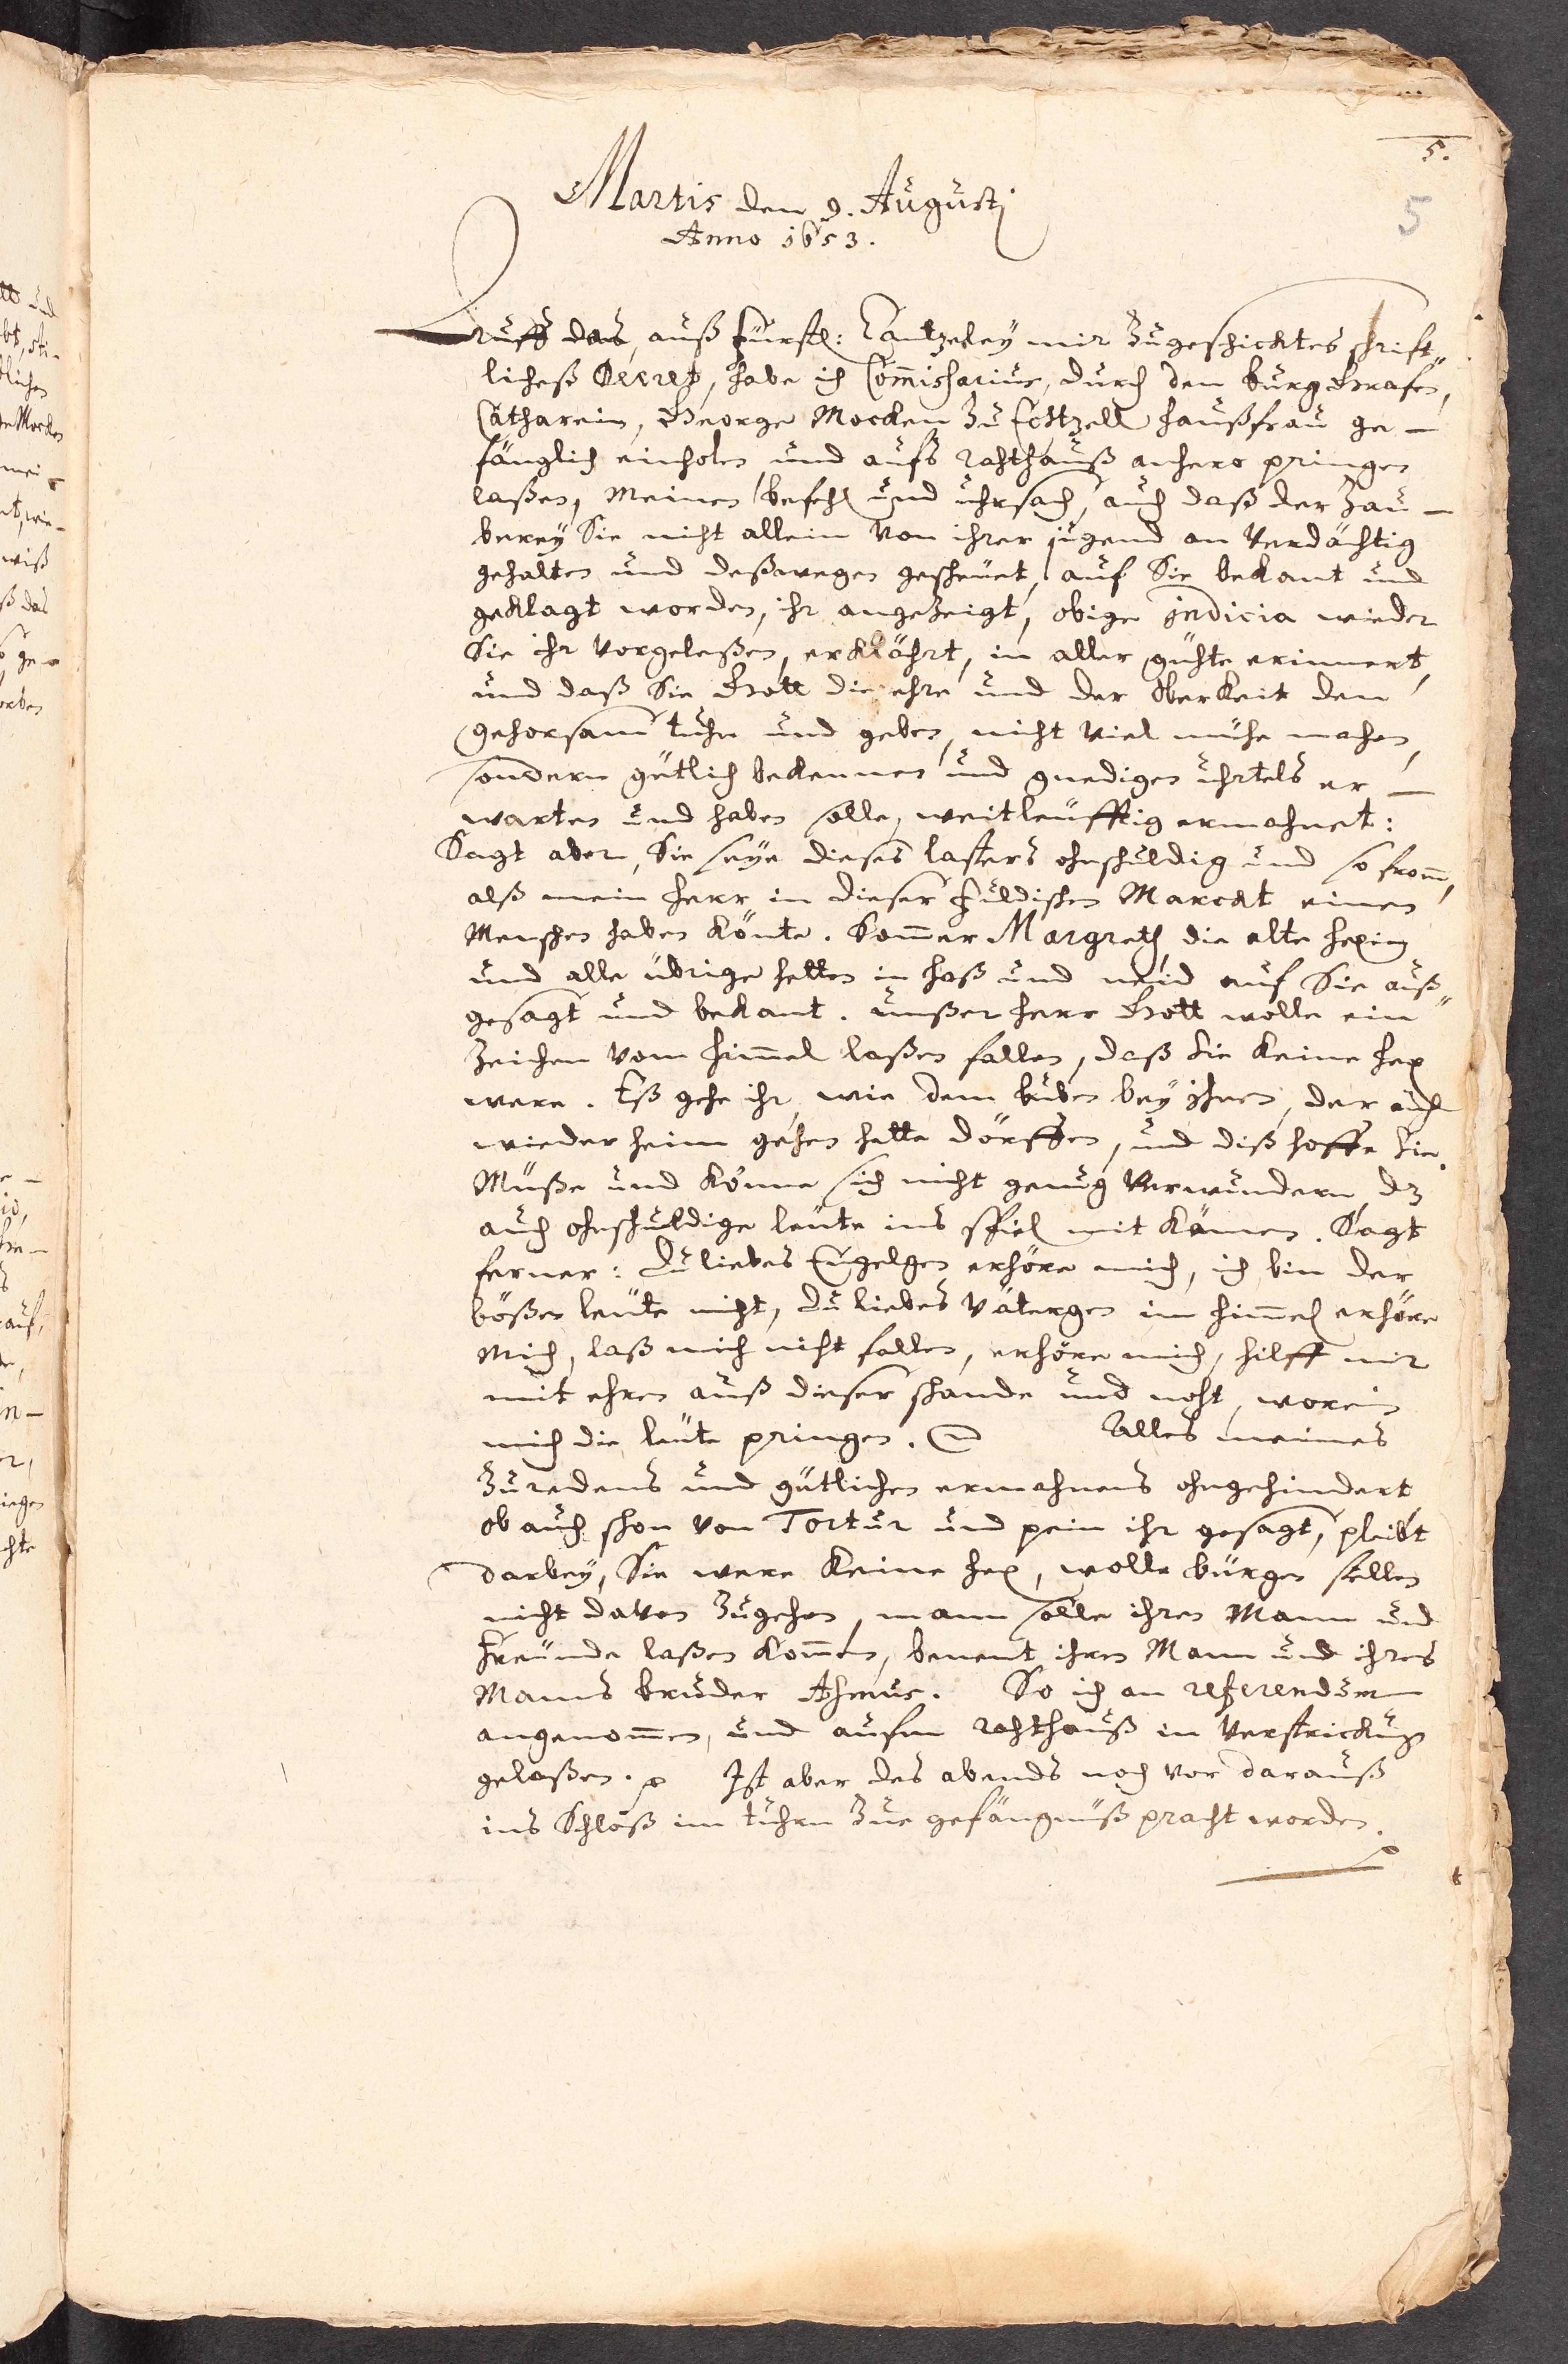 5.
5
Martis den 9. Augusti
Anno 1653.
Druff das, auß Fürstl: Cantzeley mir zugeschicktes schrift„
licheß Decret, habe ich Commissarius, durch den burg Grafen,
Catharein, George Mocken zu Echtzell haußfrau ge–
fänglich einholen und aufs rahthauß anhero pringen
laßen, meinen befehl und uhrsach, auch daß der Zau–
berey Sie nicht allein von ihrer jugend an verdächtig
gehalten und deßwegen gescheuet, auf Sie bekant und
geklagt worden, ihr angezeigt, obige jndicia wieder
Sie ihr vorgeleßen, erklährt, in aller gühte erinnert,
und daß Sie Gott die ehre und der Oberkeit den
gehorsam tuhn und geben, nicht viel mühe machen,
sondern gütlich bekennen und gnediges uhrtels er–
warten und haben solle, weitleufftig ermahnet:
Sagt aber, Sie seye dieses lasters ohnschuldig und so from̃,
alß mein herr in dieser Fuldischen Marckt einen
Menschen haben könte. Som̃er Margreth die alte hexin
und alle übrige hetten in haß und neid auf Sie auß„
gesagt und bekant. Unßer herr Gott wolle ein
Zeichen vom him̃el laßen fallen, daß sie keine hex
were. Eß gehe ihr, wie dem buben bey ihnen, der auch
wieder heim gehen hette dörffen, und diß hoffe sie.
Müße und könne sich nicht genug verwundern, dz
auch ohnschuldige leute ins spiel mit kämen. Sagt
ferner: Du liebes Engelgen erhöre mich, ich bin der
bößen leute nicht, du liebes Vätergen im him̃el erhöre
mich, laß mich nicht fallen, erhöre mich, hilff mir
mit ehren auß dieser schande und noht, worein
mich die leute pringen. Alles meines
Zuredens und gütlichen ermahnens ohngehindert
ob auch schon von Tortur und pein ihr gesagt, pleibt
darbey, Sie were keine hex, wolle bürgen stellen
nicht davon zugehen, mann solle ihren Mann und
Freunde laßen kom̃en, benent ihren Mann und ihres
Manns bruder Asmus. So ich an referendum
angenom̃en, und aufm rahthauß in verstrickung
gelaßen. Ist aber des abends noch vor darauß
ins Schloß im tuhrn zue gefängnuß pracht worden.